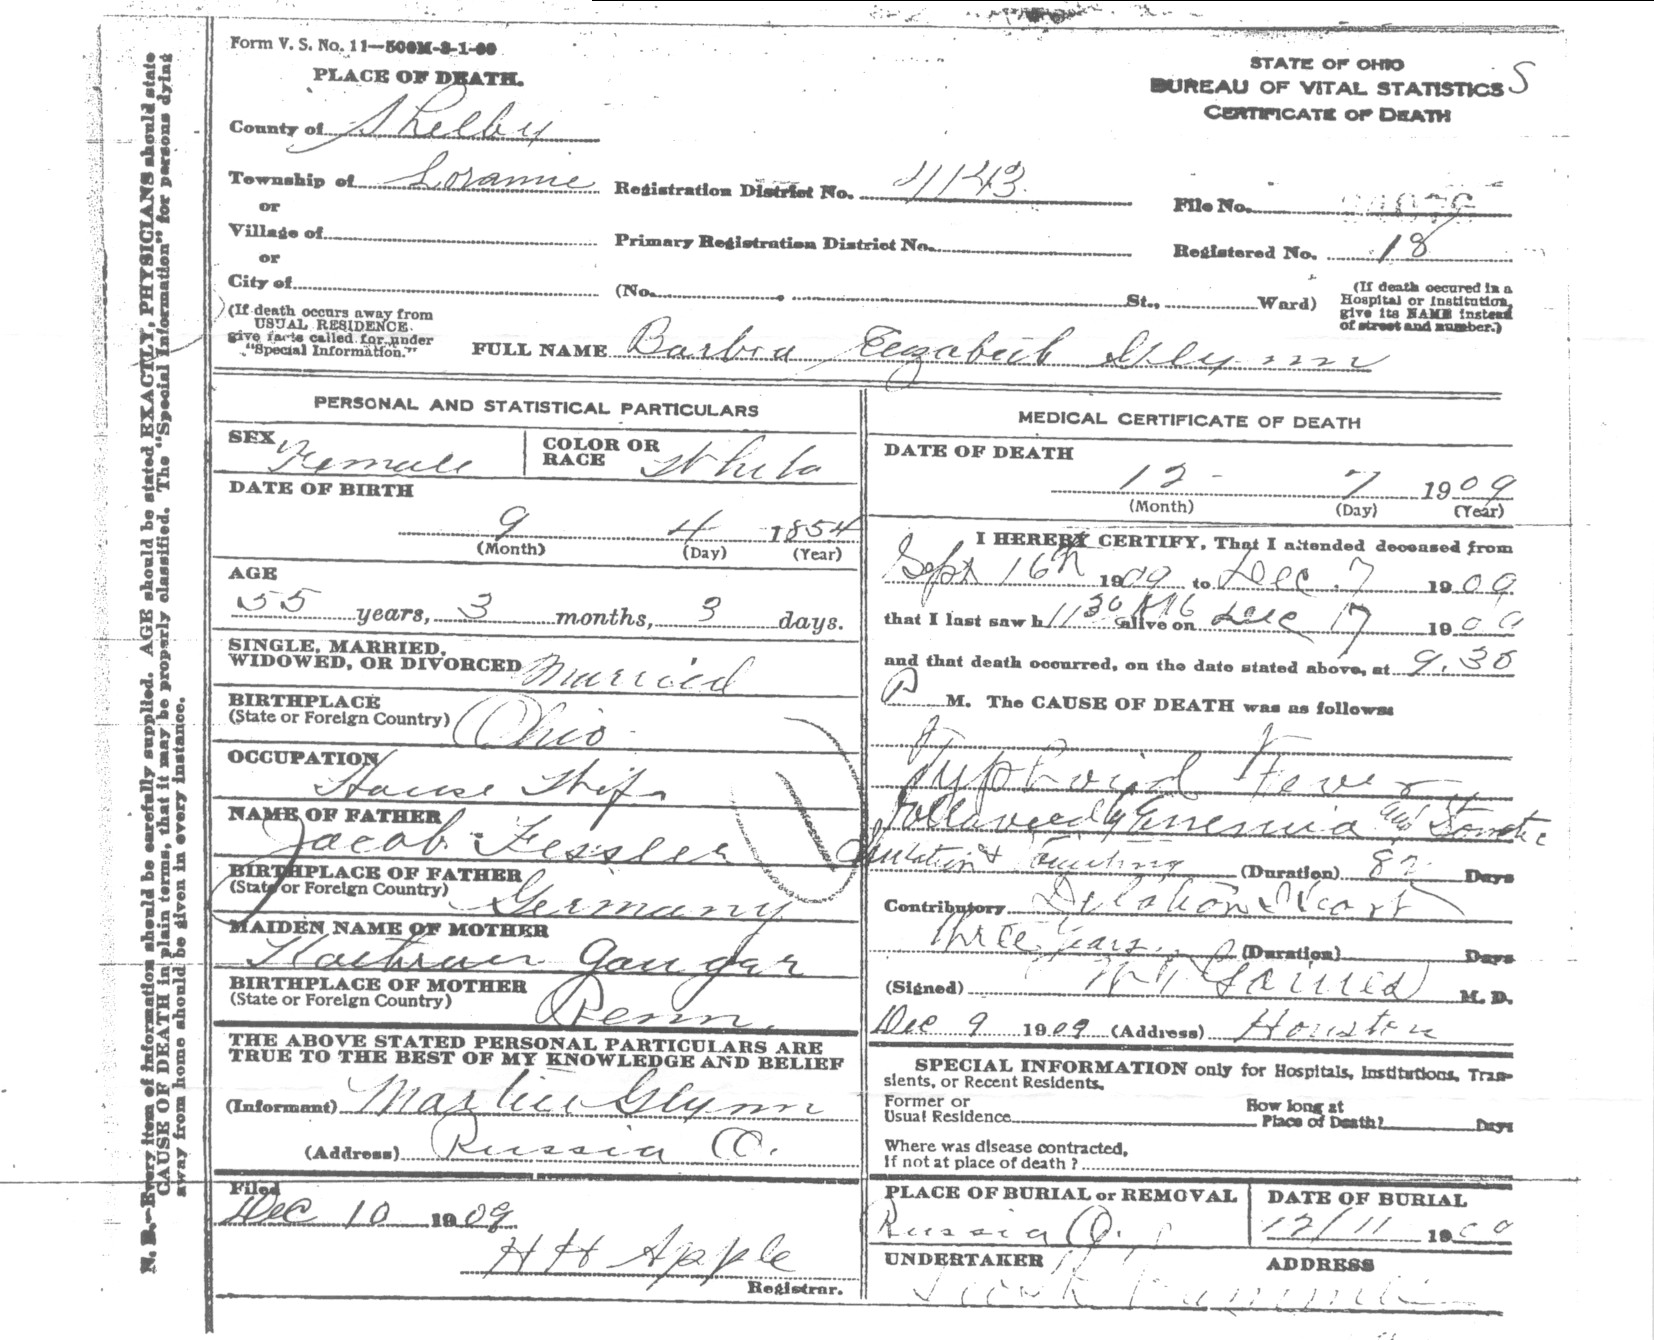 Form V. S. No. 11—500M-3-1-09
PLACE OF DEATH.
STATE OF OHIO
BUREAU OF VITAL STATISTICS S
CERTIFICATE OF DEATH
County of Shelby
Township of Loramie Registration District No. 1143
File No.
or
Village of Primary Registration District No.
Registered No. 18
or
City of (No. St., Ward)
(If death occured in a
Hospital or Institution,
give its NAME instead
of street and number.)
(If death occurs away from
USUAL RESIDENCE
give facts called for under
"Special Information."
FULL NAME Barbra Elizabeth Glynn
PERSONAL AND STATISTICAL PARTICULARS
SEX Female COLOR OR RACE White
DATE OF BIRTH
9 4 1854
(Month) (Day) (Year)
AGE
55 years, 3 months, 3 days.
SINGLE, MARRIED,
WIDOWED, OR DIVORCED Married
BIRTHPLACE
(State or Foreign Country) Ohio
OCCUPATION
House Wife
NAME OF FATHER
Jacob Fessler
BIRTHPLACE OF FATHER
(State or Foreign Country) Germany
MAIDEN NAME OF MOTHER
Gaugar
BIRTHPLACE OF MOTHER
(State or Foreign Country) Penn.
THE ABOVE STATED PERSONAL PARTICULARS ARE
TRUE TO THE BEST OF MY KNOWLEDGE AND BELIEF
(Informant) Martin Glynn
(Address) Russia O.
Filed
Dec 10 1909
H H Apple
Registrar.
MEDICAL CERTIFICATE OF DEATH
DATE OF DEATH
12 - 7 1909
(Month) (Day) (Year)
I HEREBY CERTIFY, That I attended deceased from
Sept 16th 1909 to Dec. 7 1909
that I last saw h 11 30 alive on Dec 7 1909
and that death occurred, on the date stated above, at 9.30
P M. The CAUSE OF DEATH was as follows:
Typhoid Fever
followed by Anemia and
(Duration) 82 Days
Contributory Dilation Heart
Three Years (Duration) Days
(Signed) Gaines M. D.
Dec 9 1909 (Address) Houston
SPECIAL INFORMATION only for Hospitals, Institutions, Tran-
sients, or Recent Residents.
Former or
Usual Residence
How long at
Place of Death? Days
Where was disease contracted,
If not at place of death?
PLACE OF BURIAL or REMOVAL DATE OF BURIAL
Russia O. 12/11 1909
UNDERTAKER ADDRESS
N. B.—Every item of information should be carefully supplied. AGE should be stated EXACTLY, PHYSICIANS should state
CAUSE OF DEATH in plain terms, that it may be properly classified. The "Special Information" for persons dying
away from home should be given in every instance.